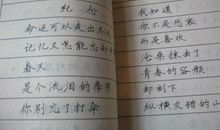 纪念
命运可以走出
记忆又怎能忘却
春天
是个流泪的季节
你别忘了打伞
我知道
你不是悲哀
而是喜欢
沧桑抹去了
青春的容颜
却刻下
纵横交错的山